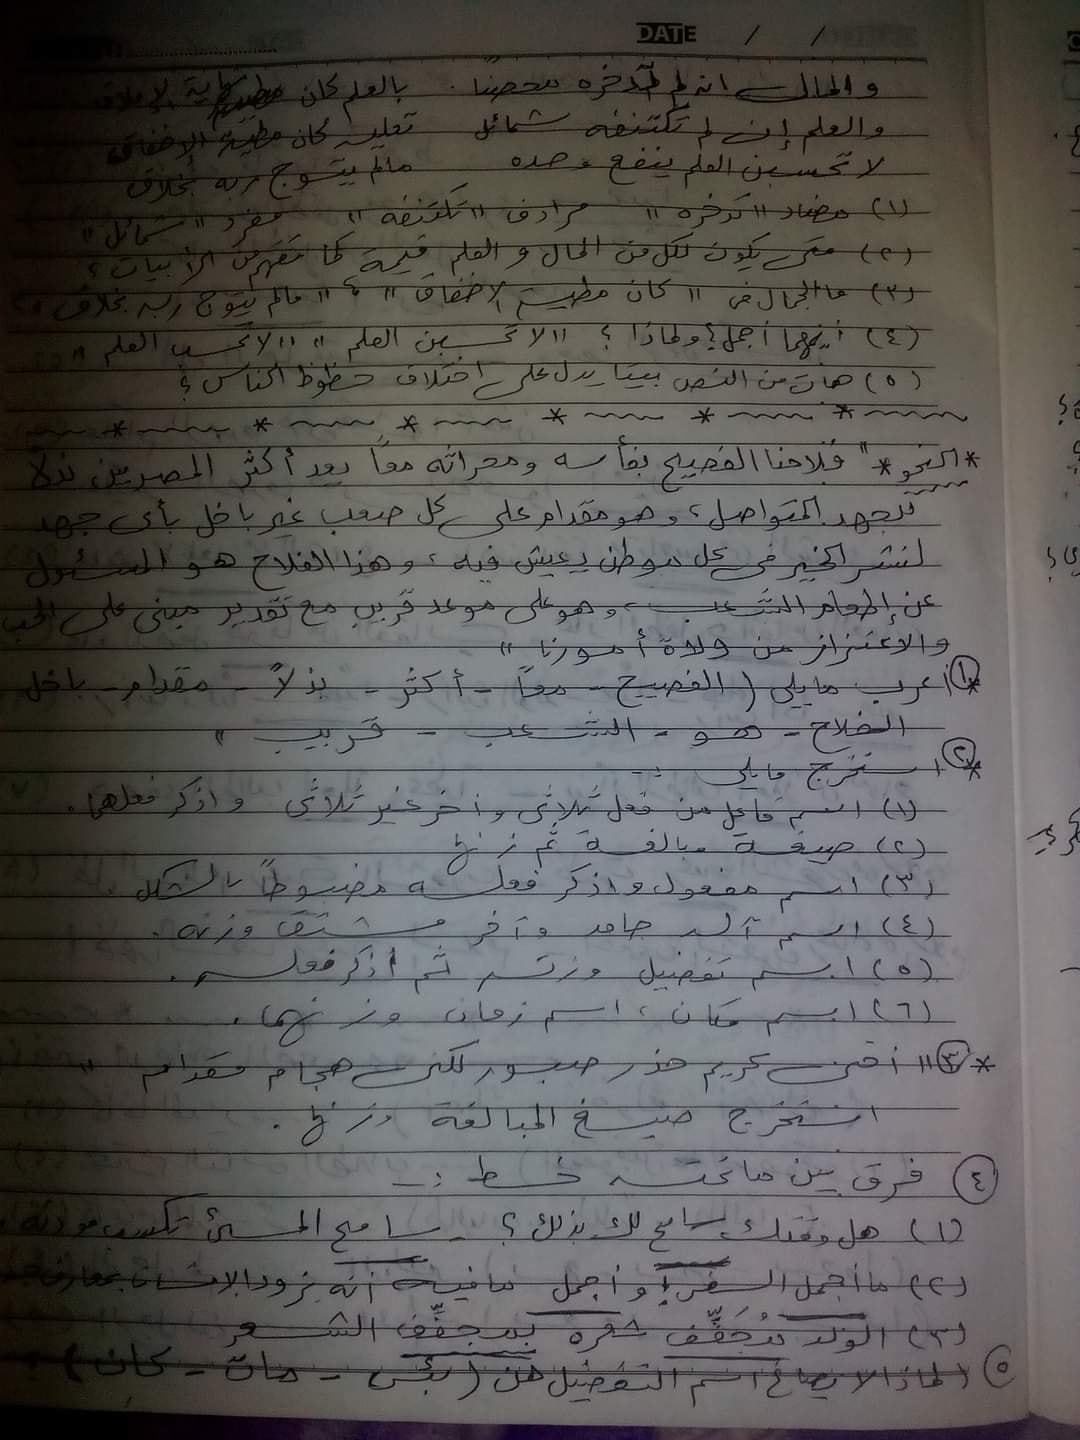 DATE / /
والمال إن لم تدخره محصنا . بالعلم كان نهاية الإملاق
والعلم إن لم تكتنفه شمائل تعليه كان مطية الإخفاق
لا تحسبن العلم ينفع وحده مالم يتوج ربه بخلاق
(١) مضاد " تدخره " مرادف " تكتنفه " مفرد " شمائل "
(٢) متى يكون لكل من المال و العلم قيمة كما تفهم من الأبيات ؟
(٣) ما الجمال فى " كان مطية الإخفاق " ؟ " مالم يتوج ربه بخلاق " ؟
(٤) أيهما أجمل ؟ ولماذا ؟ " لا تحسبن العلم " " لا تحسب العلم "
(٥) هات من النص بيتا يدل على اختلاف حظوظ الناس ؟
* النحو * " فلاحنا الفصيح بفأسه ومحراثه معاً يعد أكثر المصريين بذلاً
للجهد المتواصل ، وهو مقدام على كل صعب غير باخل بأى جهد
لنشر الخير فى كل موطن يعيش فيه ، وهذا الفلاح هو المسئول
عن إطعام الشعب ، وهو على موعد قريب مع تقدير مبنى على الحب
والاعتزاز من ولاة أمورنا "
* ١ أعرب ما يلي ( الفصيح - معاً - أكثر - بذلاً - مقدام - باخل
الفلاح - هو - الشعب - قريب "
* ٢ استخرج مايلي :-
(١) اسم فاعل من فعل ثلاثى وآخر غير ثلاثى واذكر فعلهما .
(٢) صيغة مبالغة ثم زنها
(٣) اسم مفعول واذكر فعله مضبوطاً بالشكل .
(٤) اسم آلة جامد وآخر مشتق وزنه .
(٥) اسم تفضيل وزنه ثم اذكر فعله .
(٦) اسم مكان ، اسم زمان وزنهما .
* ٣ " أخى كريم حذر صبور لكنه هجام مقدام "
استخرج صيغ المبالغة وزنها .
٤ فرق بين ما تحته خط :-
(١) هل وقتك سامح لك بذلك ؟ - سامح المسئ تكسب مودته .
(٢) ما أجمل السفر ! و أجمل مافيه أنه يزود الإنسان بمعارف
(٣) الولد مُجَفِّف شعره بمجفِّف الشعر
٥ لماذا لا يصاغ اسم التفضيل من ( بئس - مات - كان ) ؟